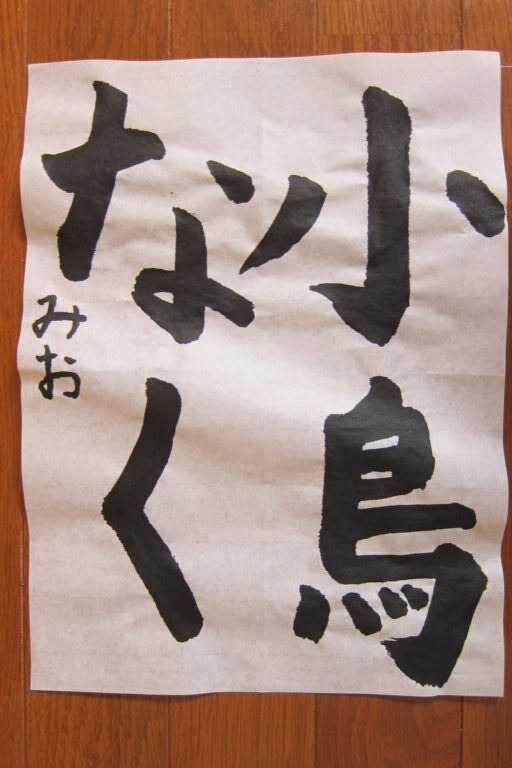 小鳥
なく
みお